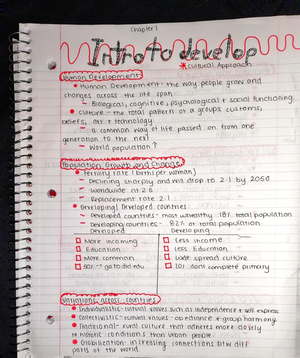 Chapter 1
Intro to develop
*Cultural Approach
Human Development
• Human Development- the way people grow and
changes across the life span.
- Biological, cognitive, psychological & social functioning.
• Culture - the total pattern of a groups customs,
beliefs, art & technology
- a common way of life passed on from one
generation to the next
- World population ↑
Population Growth and Change
• Fertility rate (births per woman)
- Declining sharply and will drop to 2.1 by 2050
- Worldwide at 2.5
- Replacement rate 2.1
• Developing/Developed countries
- Developed countries- most wealthy 18% total population
- Developing countries- 82% of total population
Developed Developing
More incoming Less income
Education Less Education
More common Wide spread culture
50% go to 20% dont complete primary
Variations across countries
• Individualistic- cultural values such as independence & self express
• Collectivistic- cultural values- obedience & group harmony
• Traditional- rural culture that adheres more closely
to historic conditions than urban people
• Globalization- increasing connections btw diff
parts of the world.